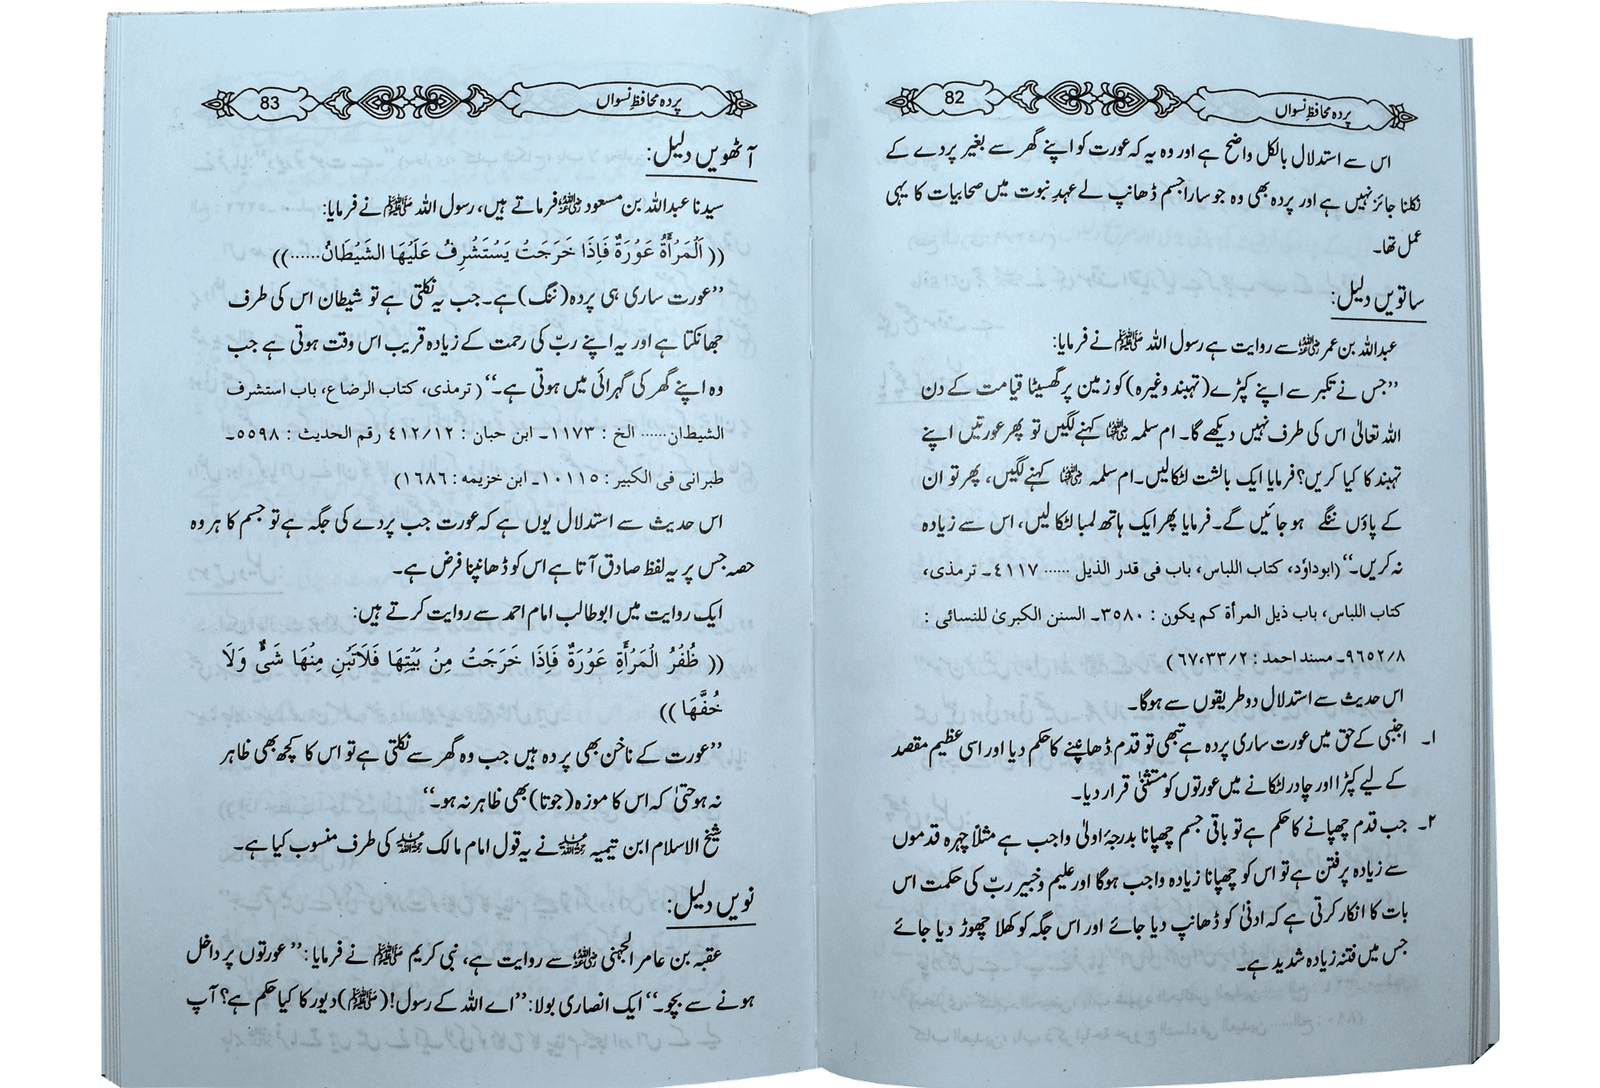 82 پردہ محافظِ نسواں
اس سے استدلال بالکل واضح ہے اور وہ یہ کہ عورت کو اپنے گھر سے بغیر پردے کے
نکلنا جائز نہیں ہے اور پردہ بھی وہ جو سارا جسم ڈھانپ لے عہدِ نبوت میں صحابیات کا یہی
عمل تھا۔
ساتویں دلیل:
عبداللہ بن عمر رضی اللہ عنہ سے روایت ہے رسول اللہ ﷺ نے فرمایا:
’’جس نے تکبر سے اپنے کپڑے (تہبند وغیرہ) کو زمین پر گھسیٹا قیامت کے دن
اللہ تعالیٰ اس کی طرف نہیں دیکھے گا۔ ام سلمہ رضی اللہ عنہا کہنے لگیں تو پھر عورتیں اپنے
تہبند کا کیا کریں؟ فرمایا ایک بالشت لٹکالیں۔ ام سلمہ رضی اللہ عنہا کہنے لگیں، پھر تو ان
کے پاؤں ننگے ہو جائیں گے۔ فرمایا پھر ایک ہاتھ لمبا لٹکا لیں، اس سے زیادہ
نہ کریں۔‘‘ (ابوداؤد، کتاب اللباس، باب فی قدر الذیل ...... ٤١١٧۔ ترمذی،
کتاب اللباس، باب ذیل المرأة کم یکون : ٣٥٨٠۔ السنن الکبریٰ للنسائی :
٩٦٥٢/٨۔ مسند احمد : ٦٧،٣٣/٢)
اس حدیث سے استدلال دو طریقوں سے ہوگا۔
۱۔ اجنبی کے حق میں عورت ساری پردہ ہے تبھی تو قدم ڈھانپنے کا حکم دیا اور اسی عظیم مقصد
کے لیے کپڑا اور چادر لٹکانے میں عورتوں کو مستثنیٰ قرار دیا۔
۲۔ جب قدم چھپانے کا حکم ہے تو باقی جسم چھپانا بدرجۂ اولیٰ واجب ہے مثلاً چہرہ قدموں
سے زیادہ پرفتن ہے تو اس کو چھپانا زیادہ واجب ہوگا اور علیم و خبیر ربّ کی حکمت اس
بات کا انکار کرتی ہے کہ ادنیٰ کو ڈھانپ دیا جائے اور اس جگہ کو کھلا چھوڑ دیا جائے
جس میں فتنہ زیادہ شدید ہے۔
83 پردہ محافظِ نسواں
آٹھویں دلیل:
سیدنا عبداللہ بن مسعود رضی اللہ عنہ فرماتے ہیں، رسول اللہ ﷺ نے فرمایا:
(( اَلْمَرْأَةُ عَوْرَةٌ فَاِذَا خَرَجَتْ يَسْتَشْرِفُ عَلَيْهَا الشَّيْطَانُ......))
’’عورت ساری ہی پردہ (ننگ) ہے۔ جب یہ نکلتی ہے تو شیطان اس کی طرف
جھانکتا ہے اور یہ اپنے ربّ کی رحمت کے زیادہ قریب اس وقت ہوتی ہے جب
وہ اپنے گھر کی گہرائی میں ہوتی ہے۔‘‘ ( ترمذی، کتاب الرضاع، باب استشرف
الشیطان...... الخ : ١١٧٣۔ ابن حبان : ٤١٢/١٢ رقم الحدیث : ٥٥٩٨۔
طبرانی فی الکبیر : ١٠١١٥۔ ابن خزیمه : ١٦٨٦)
اس حدیث سے استدلال یوں ہے کہ عورت جب پردے کی جگہ ہے تو جسم کا ہر وہ
حصہ جس پر یہ لفظ صادق آتا ہے اس کو ڈھانپنا فرض ہے۔
ایک روایت میں ابو طالب امام احمد سے روایت کرتے ہیں:
(( ظُفْرُ الْمَرْأَةِ عَوْرَةٌ فَاِذَا خَرَجَتْ مِنْ بَيْتِهَا فَلَاتَبْنِ مِنْهَا شَیْءٌ وَلَا
خُفَّهَا ))
’’عورت کے ناخن بھی پردہ ہیں جب وہ گھر سے نکلتی ہے تو اس کا کچھ بھی ظاہر
نہ ہو حتیٰ کہ اس کا موزہ (جوتا) بھی ظاہر نہ ہو۔‘‘
شیخ الاسلام ابن تیمیہ رحمہ اللہ نے یہ قول امام مالک رحمہ اللہ کی طرف منسوب کیا ہے۔
نویں دلیل:
عقبہ بن عامر الجہنی رضی اللہ عنہ سے روایت ہے، نبی کریم ﷺ نے فرمایا: ’’عورتوں پر داخل
ہونے سے بچو۔‘‘ ایک انصاری بولا: ’’اے اللہ کے رسول! (ﷺ) دیور کا کیا حکم ہے؟ آپ